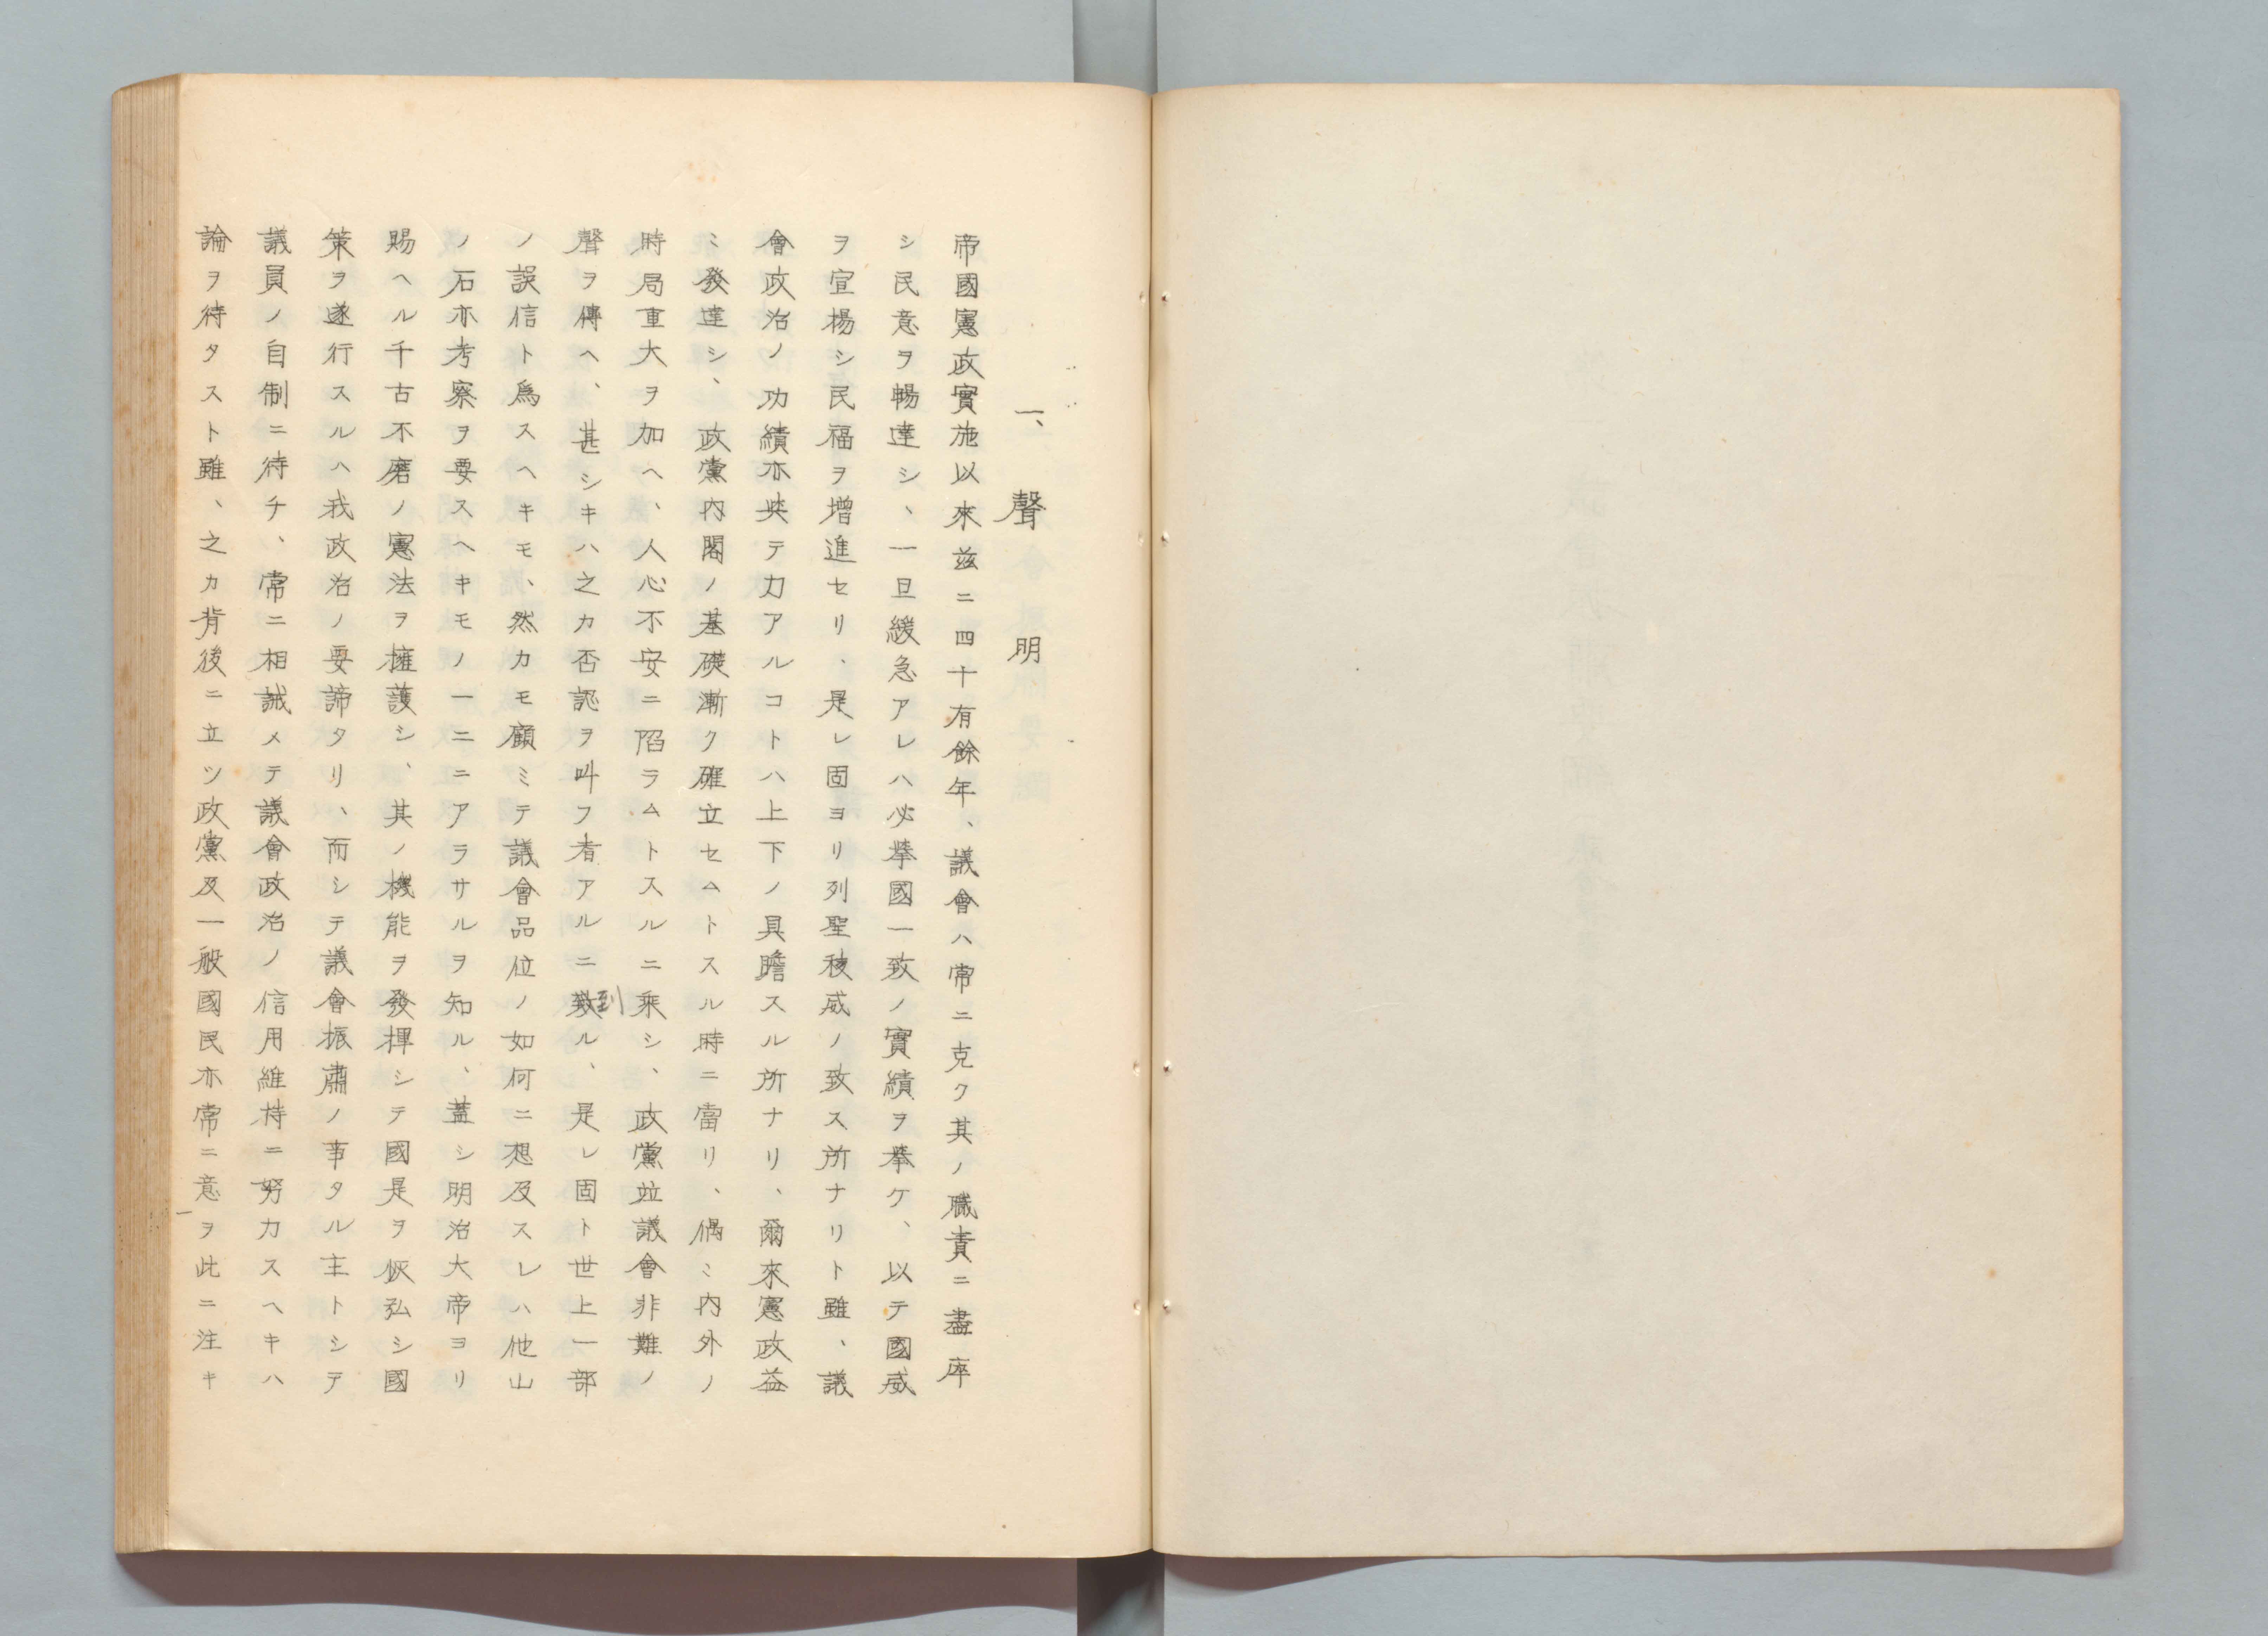 一、聲明
帝國憲政實施以來茲ニ四十有餘年、議會ハ常ニ克ク其ノ職責ニ盡瘁
シ民意ヲ暢達シ、一旦緩急アレハ必擧國一致ノ實績ヲ擧ケ、以テ國威
ヲ宣揚シ民福ヲ增進セリ、是レ固ヨリ列聖稜威ノ致ス所ナリト雖、議
會政治ノ功績亦與テ力アルコトハ上下ノ具瞻スル所ナリ、爾來憲政益
ミ發達シ、政黨內閣ノ基礎漸ク確立セムトスル時ニ當リ、偶ミ內外ノ
時局重大ヲ加ヘ、人心不安ニ陷ラムトスルニ乘シ、政黨竝議會非難ノ
聲ヲ傳ヘ、甚シキハ之カ否認ヲ叫フ者アルニ致到ル、是レ固ト世上一部
ノ誤信ト爲スヘキモ、然カモ顧ミテ議會品位ノ如何ニ想及スレハ他山
ノ石亦考察ヲ要スヘキモノ一ニニアラサルヲ知ル、蓋シ明治大帝ヨリ
賜ヘル千古不磨ノ憲法ヲ擁護シ、其ノ機能ヲ發揮シテ國是ヲ恢弘シ國
策ヲ遂行スルハ我政治ノ要諦タリ、而シテ議會振肅ノ事タル主トシテ
議員ノ自制ニ待チ、常ニ相誡メテ議會政治ノ信用維持ニ努力スヘキハ
論ヲ待タスト雖、之カ背後ニ立ツ政黨及一般國民亦常ニ意ヲ此ニ注キ